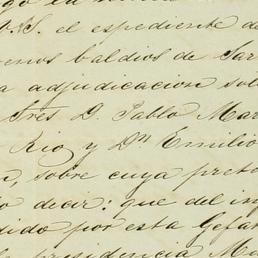 V.S. el expediente de
enos baldios de Sar
a adjudicacion sol
Sres. D. Pablo Mar
Rio y Dn Emilio
sobre cuya preto
decir: que del in
dido por esta Gefat
la presidencia Mu